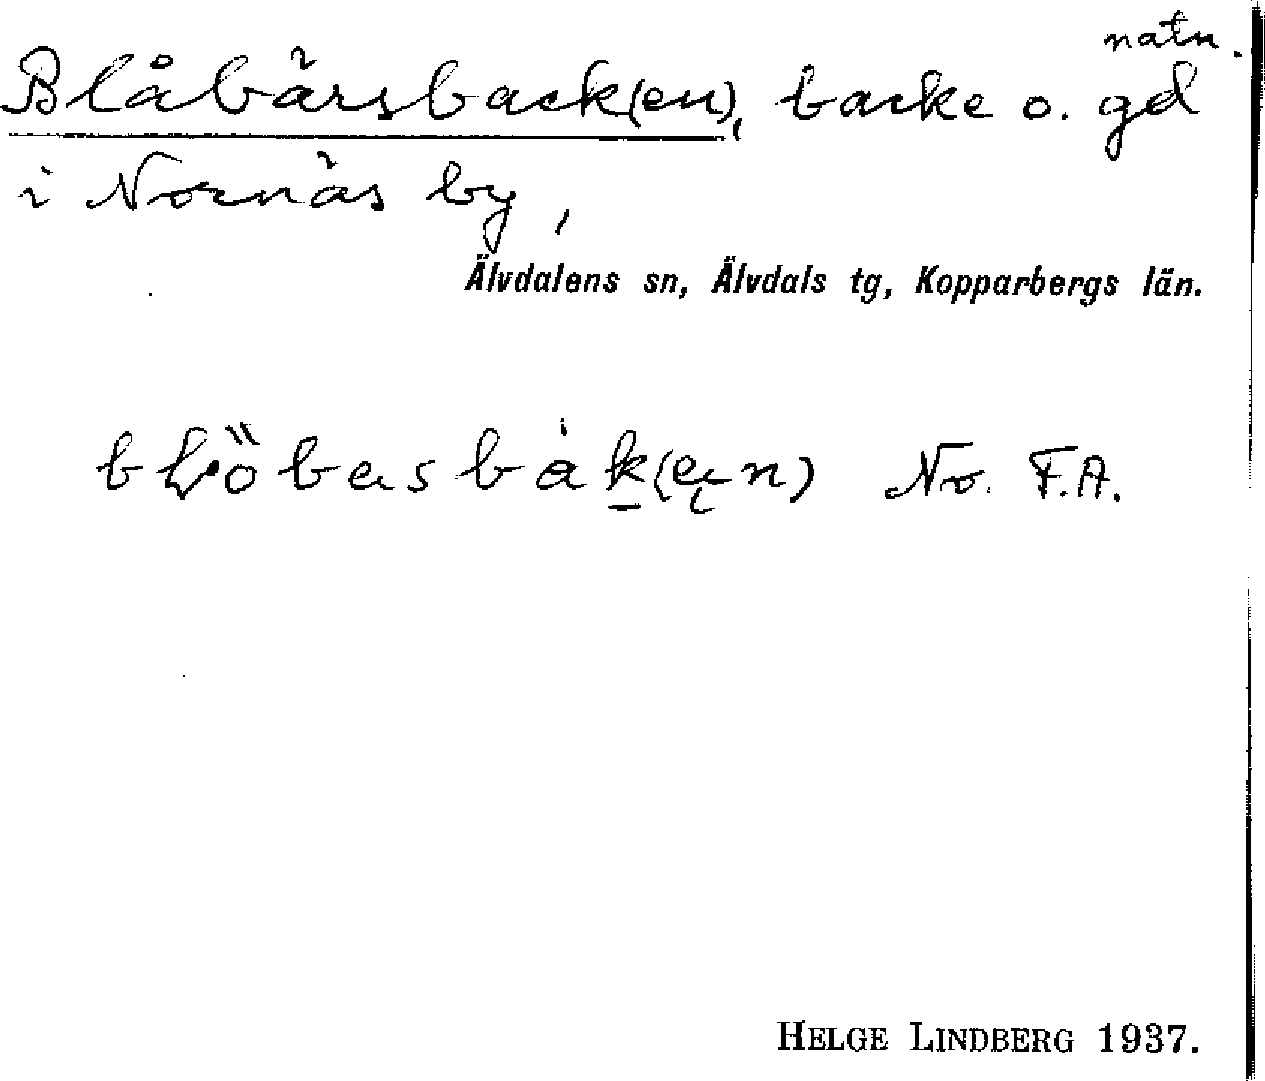 natn.
Blåbärsback(en), backe o. gd
i Nornäs by,
Älvdalens sn, Älvdals tg, Kopparbergs län.
No. F.A.
HELGE LINDBERG 1937.